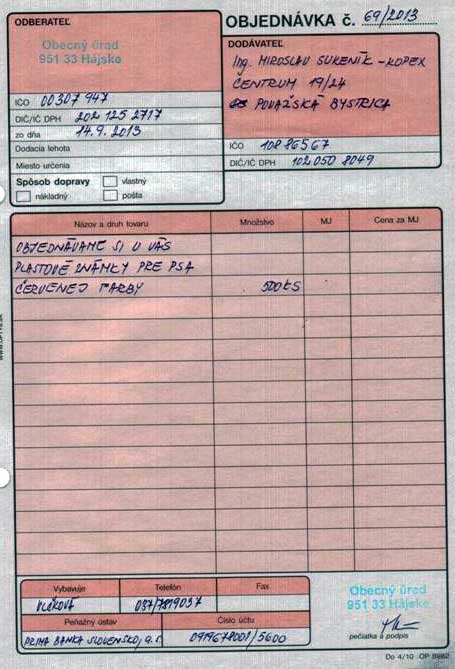 ODBERATEĽ
Obecný úrad
951 33 Hájske
IČO 00307 947
DIČ/IČ DPH 202 125 2717
zo dňa 14.9.2013
Dodacia lehota
Miesto určenia
Spôsob dopravy
vlastný
nákladný
pošta
OBJEDNÁVKA č. 69/2013
DODÁVATEĽ
Ing. MIROSLAV SUKENÍK - KOPEX
CENTRUM 19/24
POVAŽSKÁ BYSTRICA
IČO 10886567
DIČ/IČ DPH 102 050 8049
Názov a druh tovaru Množstvo MJ Cena za MJ
OBJEDNÁVAME SI U VÁS
PLASTOVÉ ZNÁMKY PRE PSA
ČERVENEJ FARBY 500 KS
Vybavuje Telefón Fax
VLČKOVÁ 037/7819037
Peňažný ústav Číslo účtu
PRIMA BANKA SLOVENSKO, a.s. 0919678001/5600
Obecný úrad
951 33 Hájske
pečiatka a podpis
Do 4/10 OP 8962